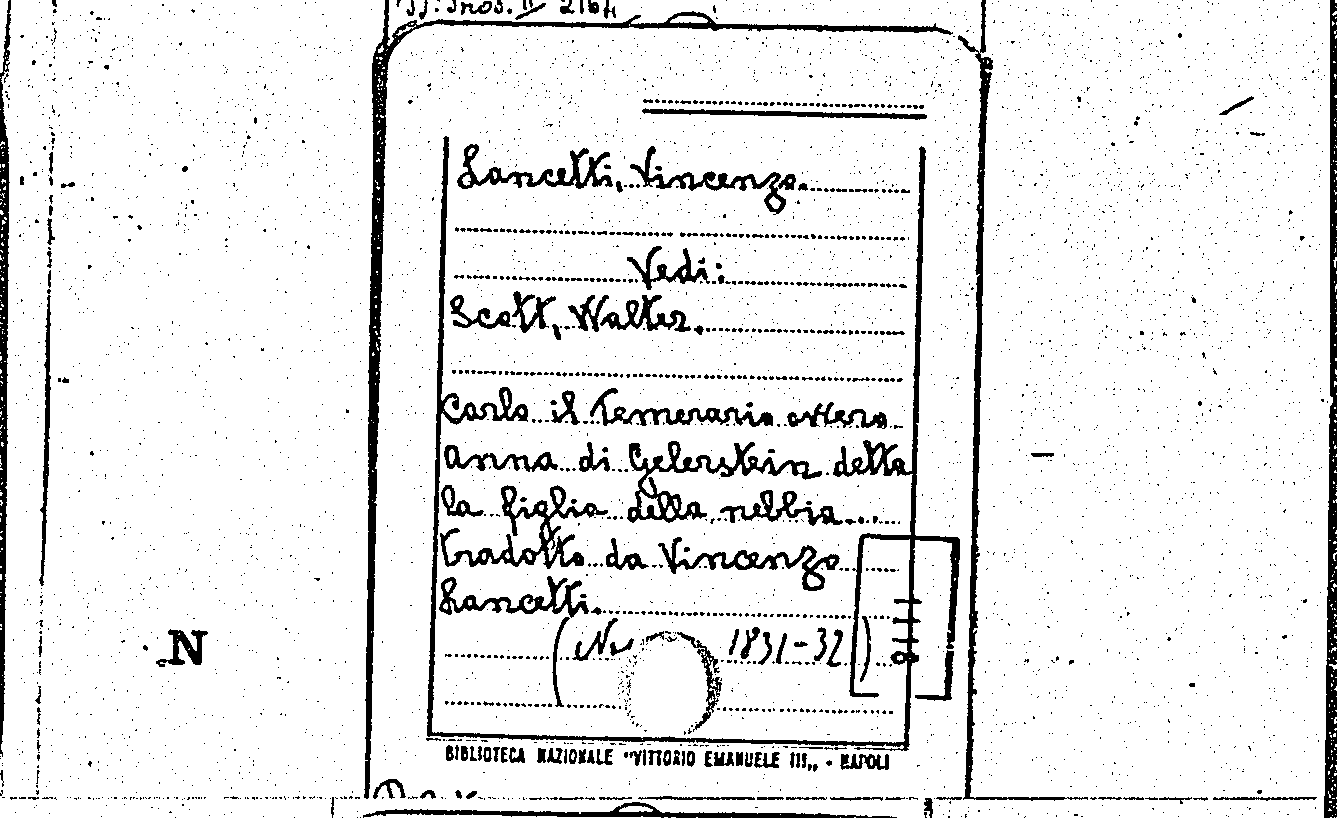 Lancetti, Vincenzo.
Vedi:
Scott, Walter.
Carlo il Temerario ovvero
Anna di Gelerstein detta
la figlia della nebbia...
tradotto da Vincenzo
Lancetti.
( 1831-32)
N
BIBLIOTECA NAZIONALE "VITTORIO EMANUELE III„ - NAPOLI